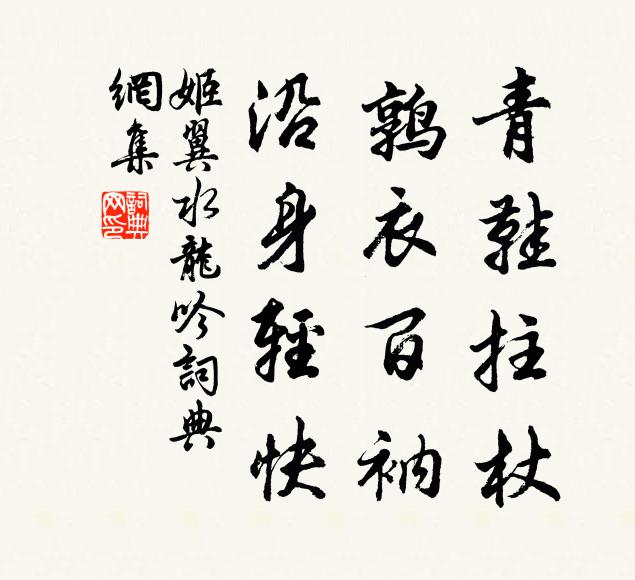 青鞋拄杖
鹑衣百衲
沿身輕快
姬翼水龍吟詞典
網集
詞典
网印